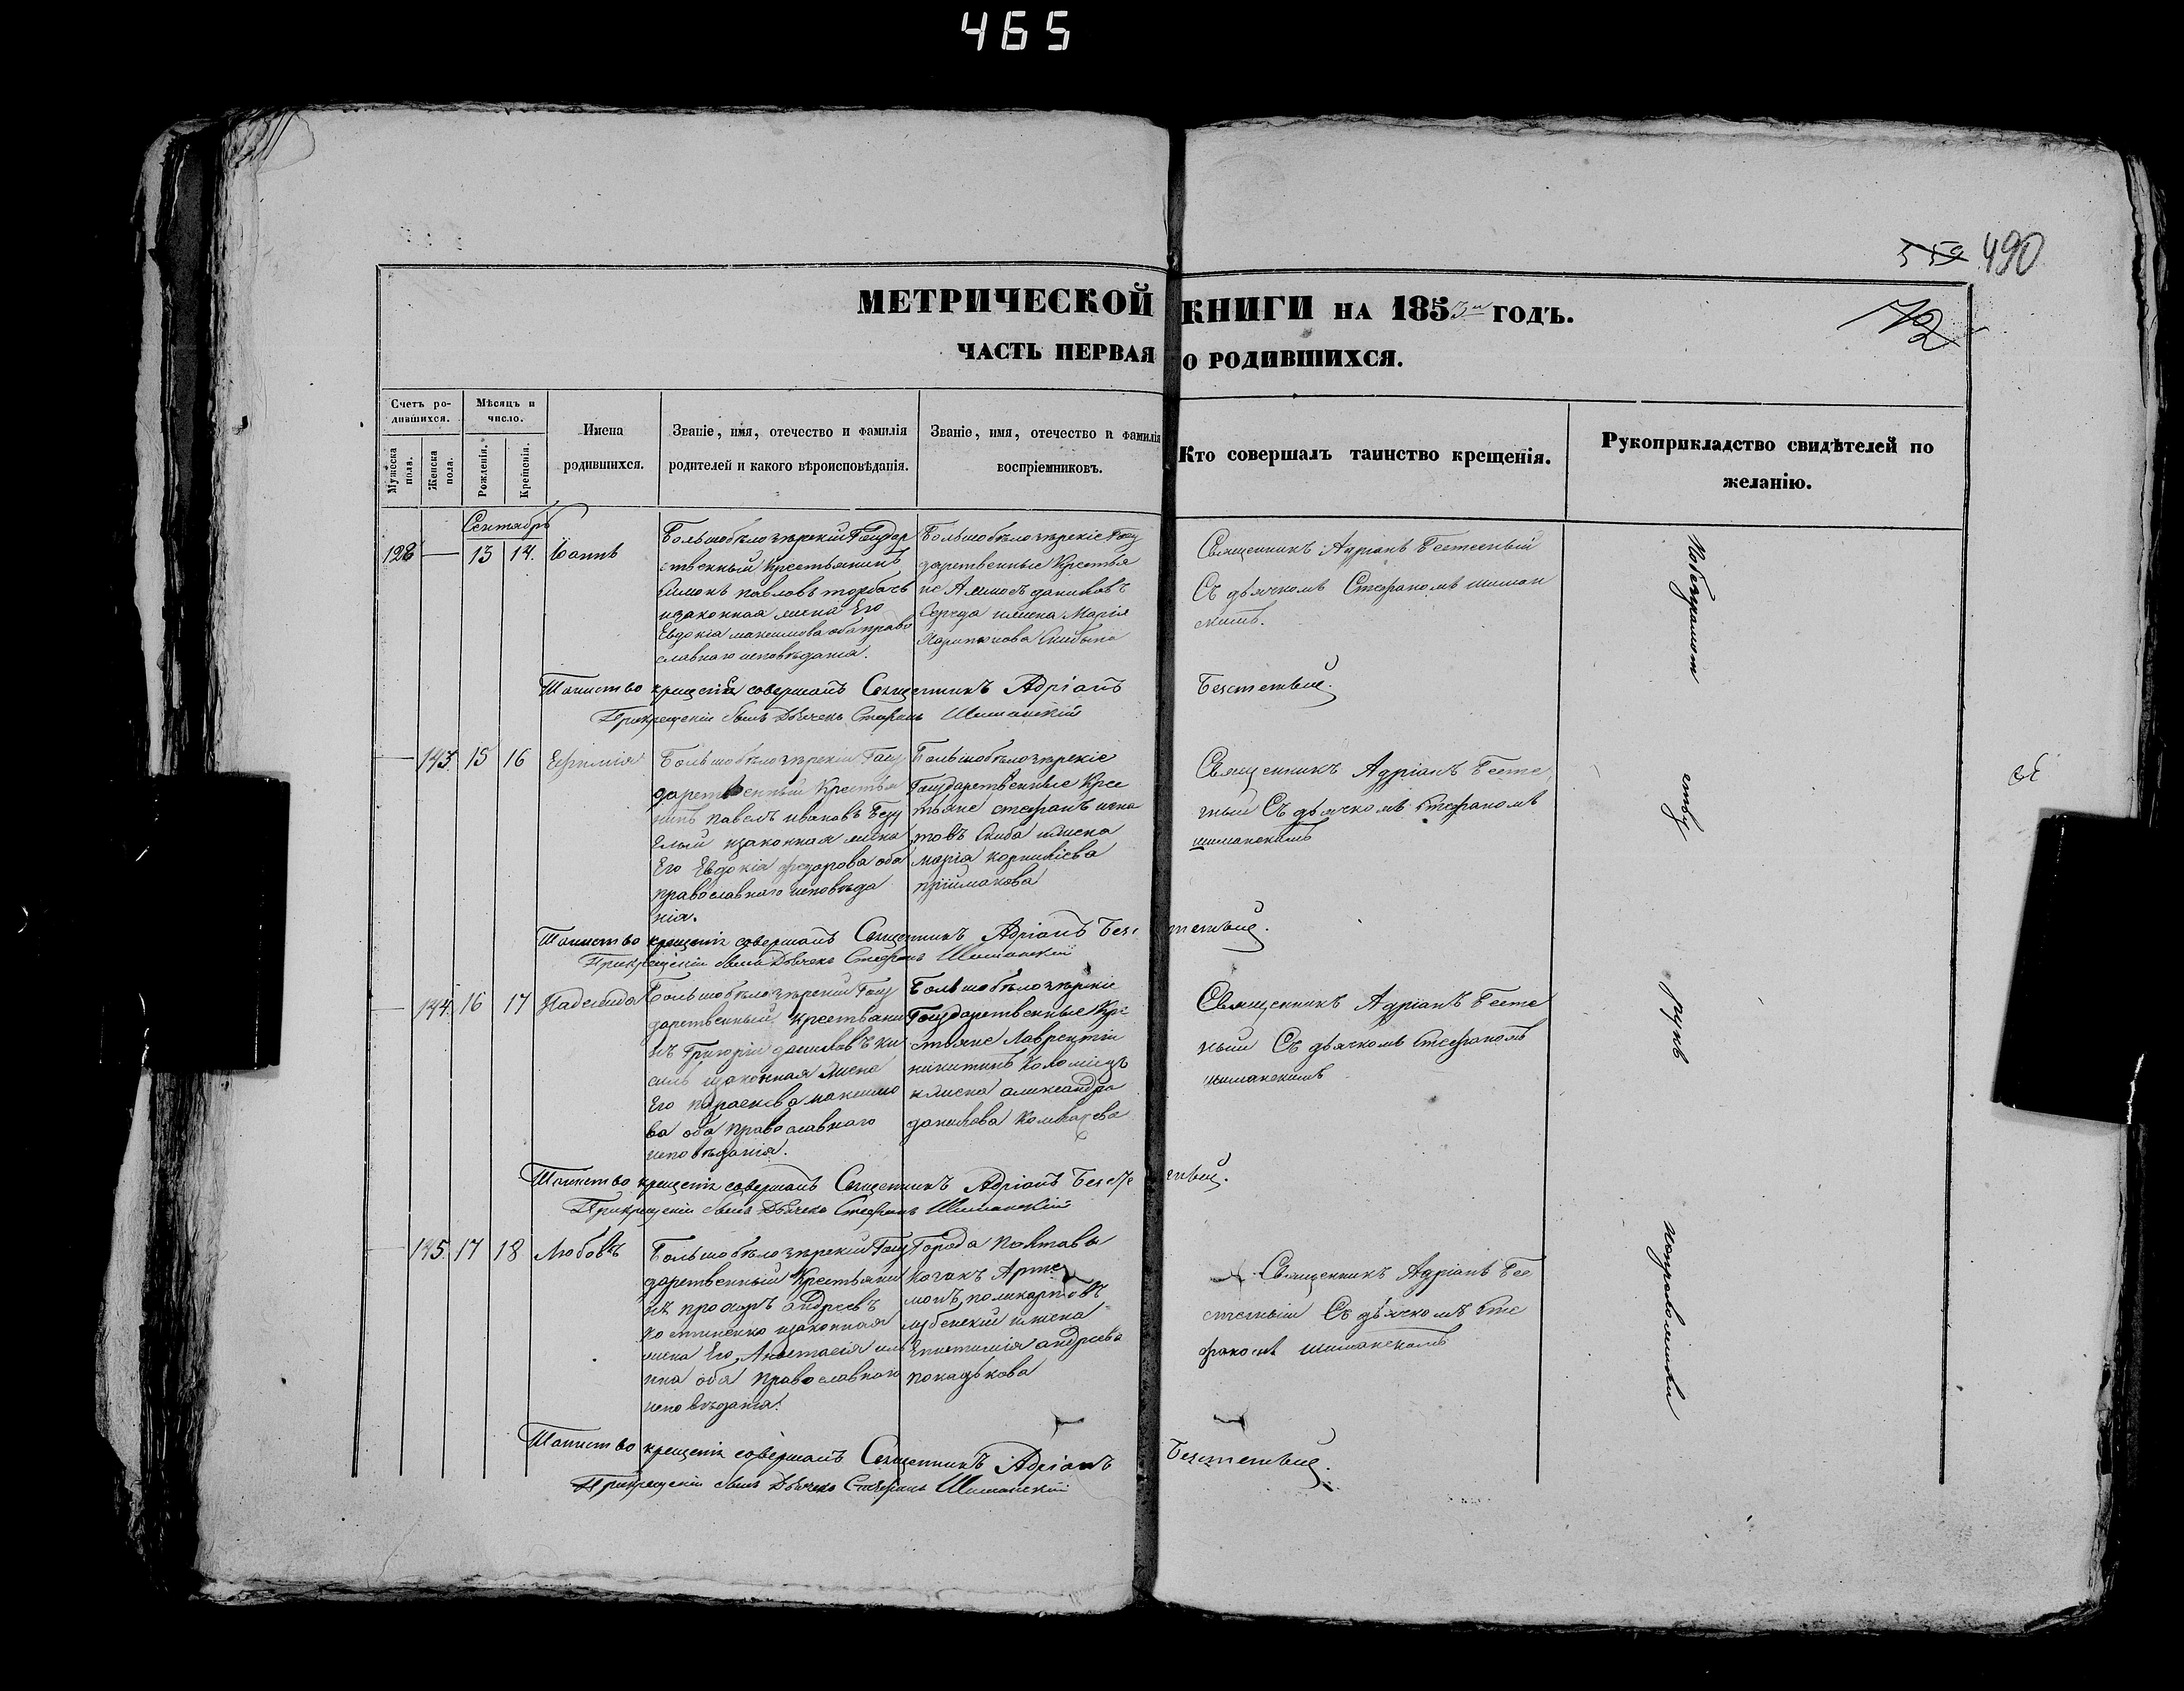 465
559 490
72
МЕТРИЧЕСКОЙ КНИГИ НА 1853й ГОДЪ.
ЧАСТЬ ПЕРВАЯ О РОДИВШИХСЯ.
Счетъ родившихся.
Мужеска пола.
Женска пола.
Мѣсяцъ и число.
Рожденія.
Крещенія.
Имена родившихся.
Званіе, имя, отечество и фамилія родителей и какого вѣроисповѣданія.
Званіе, имя, отечество и фамилія воспріемниковъ.
Кто совершалъ таинство крещенія.
Рукоприкладство свидѣтелей по желанію.
Сентябрь
128 — 13 14. Іоаннъ
Большобѣлозѣрскій Государ
ственный крестьянинъ
Симонъ павловъ торбачь
изаконная жена Его
Евдокіа максимова оба право
славнаго исповѣданія.
Большобѣлозѣрскіе Госу
дарственные Крестья
не Аммосъ даниловъ
Середа ижена Марія
Скибына
Священникъ Адріанъ Бесте
Съ дьячкомъ Стефаномъ шиман
скимъ.
Таинство крещенія совершалъ Священникъ Адріанъ
При крещеніи былъ Дьячекъ Стефанъ Шиманскій
— 143. 15 16 Ефимія
Большобѣлозѣрскій Госу
дарственный Крестья
нинъ Павелъ ивановъ
изаконная жена
Его Евдокіа федорова оба
православнаго исповѣда
нія.
Большобѣлозѣрскіе
Государственные Крес
тьяне стефанъ игна
товъ Скиба ижена
марія корнилієва
пріимакова
Священникъ Адріанъ Бесте
Съ дьячкомъ Стефаномъ
шиманскимъ
Таинство крещенія совершалъ Священникъ Адріанъ
При крещеніи былъ Дьячекъ Стефанъ Шиманскій
— 144. 16 17 Надежда
Большобѣлозѣрскій Госу
дарственный крестьяни
нъ Григорій даниловъ ки
силь изаконная жена
Его параскева максимо
ва оба православнаго
исповѣданія.
Большобѣлозѣрскіе
Государственные Кре
стьяне Лаврентій
никитинъ Коломіецъ
ижена александра
данилова
Священникъ Адріанъ Бесте
Съ дьячкомъ Стефаномъ
шиманскимъ
Таинство крещенія совершалъ Священникъ Адріанъ
При крещеніи былъ Дьячекъ Стефанъ Шиманскій
— 145. 17 18 Любовь
Большобѣлозѣрскій Госу
дарственный Крестьяни
нъ прохоръ андреевъ
костиненко изаконная
жена Его Анастасія иль
ина оба православнаго
исповѣданія.
Города Полтавы
Козакъ Арте
монъ поликарповъ
лубенскій ижена
Епистимія андреева
Священникъ Адріанъ Бес
Съ дьячкомъ Сте
фаномъ шиманскимъ
Таинство крещенія совершалъ Священникъ Адріанъ
При крещеніи былъ Дьячекъ Стефанъ Шиманскій